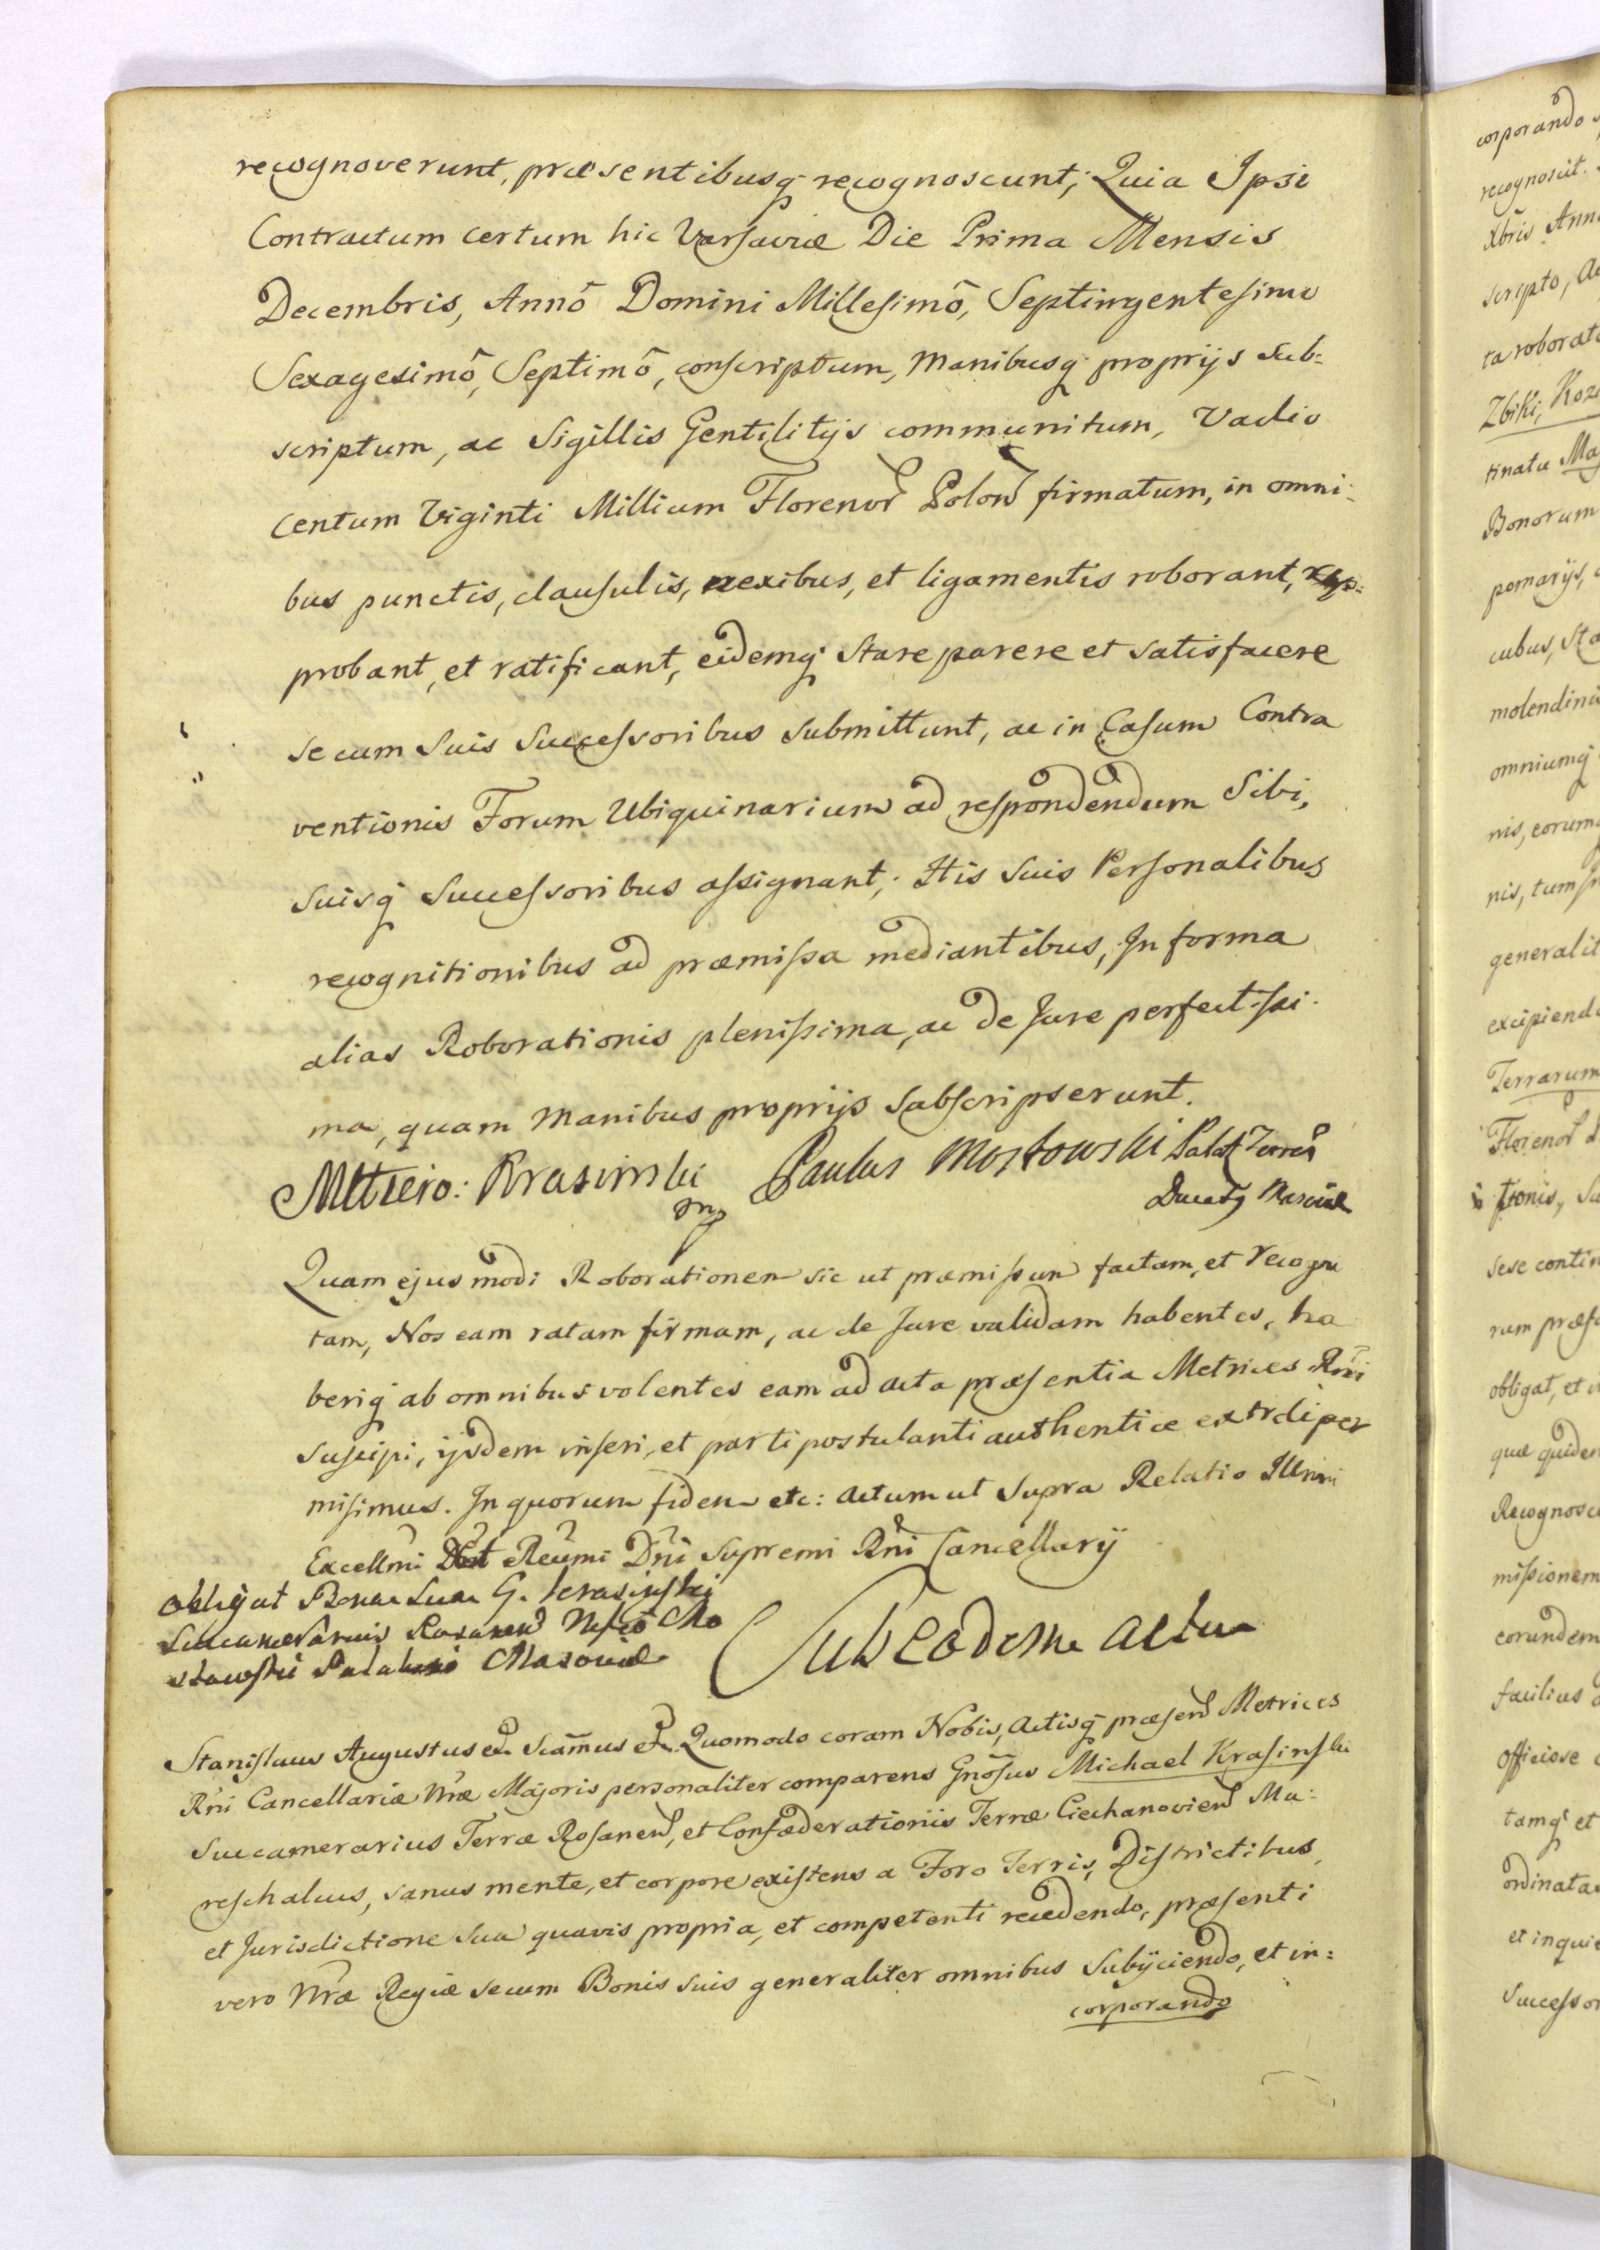 recognoverunt, præsentibusq recognoscunt; Quia Ipsi
Contractum certum hic Varsaviæ Die Prima Mensis
Decembris, Annô Domini Millesimô, Septingentesimo
Sexagesimô, Septimô, conscriptum, Manibusq proprijs sub=
scriptum, ac Sigillis Gentilitijs communitum, Vadio
Centum Viginti Millium Florenor Polon firmatum, in omni=
bus punctis, clausulis, nexibus, et ligamentis roborant,
probant, et ratificant, eidemq stare parere et satisfacere
se cum suis Successoribus submittunt, ac in Casum Contra
ventionis Forum Ubiquinarium ad respondendum Sibi,
suisq Successoribus assignant; His suis Personalibus
recognitionibus ad præmissa mediantibus, In forma
alias Roborationis plenissima, ac de Jure perfectissi=
ma, quam Manibus proprijs subscripserunt.
Krasinski Paulus Mostowski Palat Terrar
mp Ducatq Masoviæ
Quam ejusmodi Roborationem sic ut præmissum factam, et recogni
tam, Nos eam ratam firmam, ac de Jure validam habentes, ha
beriq ab omnibus volentes eam ad acta præsentia Metrices Rni
suscipi, ijsdem inseri, et parti postulanti authentice extradi per
misimus. In quorum fidem etc: Actum ut supra Relatio Illrmi
Excellmi Reumi Dni Supremi Rni Cancellarij
Obligat Bona Sua G. Krasinski
Succamerarius Rosanen Mfico Mo
stowski Palatino Masoviæ
Sub eodem actu
Stanislaus Augustus etc Scamus etc. Quomodo coram Nobis, Actisq præsen Metrices
Rni Cancellariæ Nræ Majoris personaliter comparens Gnosus Michael Krasinski
Succamerarius Terræ Rosanen, et Confæderationis Terræ Ciechanovien Ma=
reschalcus, sanus mente, et corpore existens a Foro Terris, Districtibus,
et Jurisdictione sua quavis propria, et competenti recedendo, præsenti
vero Nræ Regiæ se cum Bonis suis generaliter omnibus subijciendo, et in=
corporando
corporando
recognoscit.
Xbris Anno
scripto,
ta roborato
Zbiki,
tinatu
Bonorum
pomarijs,
cubus,
molendinis
omniumq
nis,
nis, tum
generalit
excipiendo
Terrarum
Florenor
ptionis,
sese contin
rum
obligat, et
quæ quidem
Recognosc
missionem
eorundem
facilius
Officiose
tamq et
ordinata
et inquie
Successor